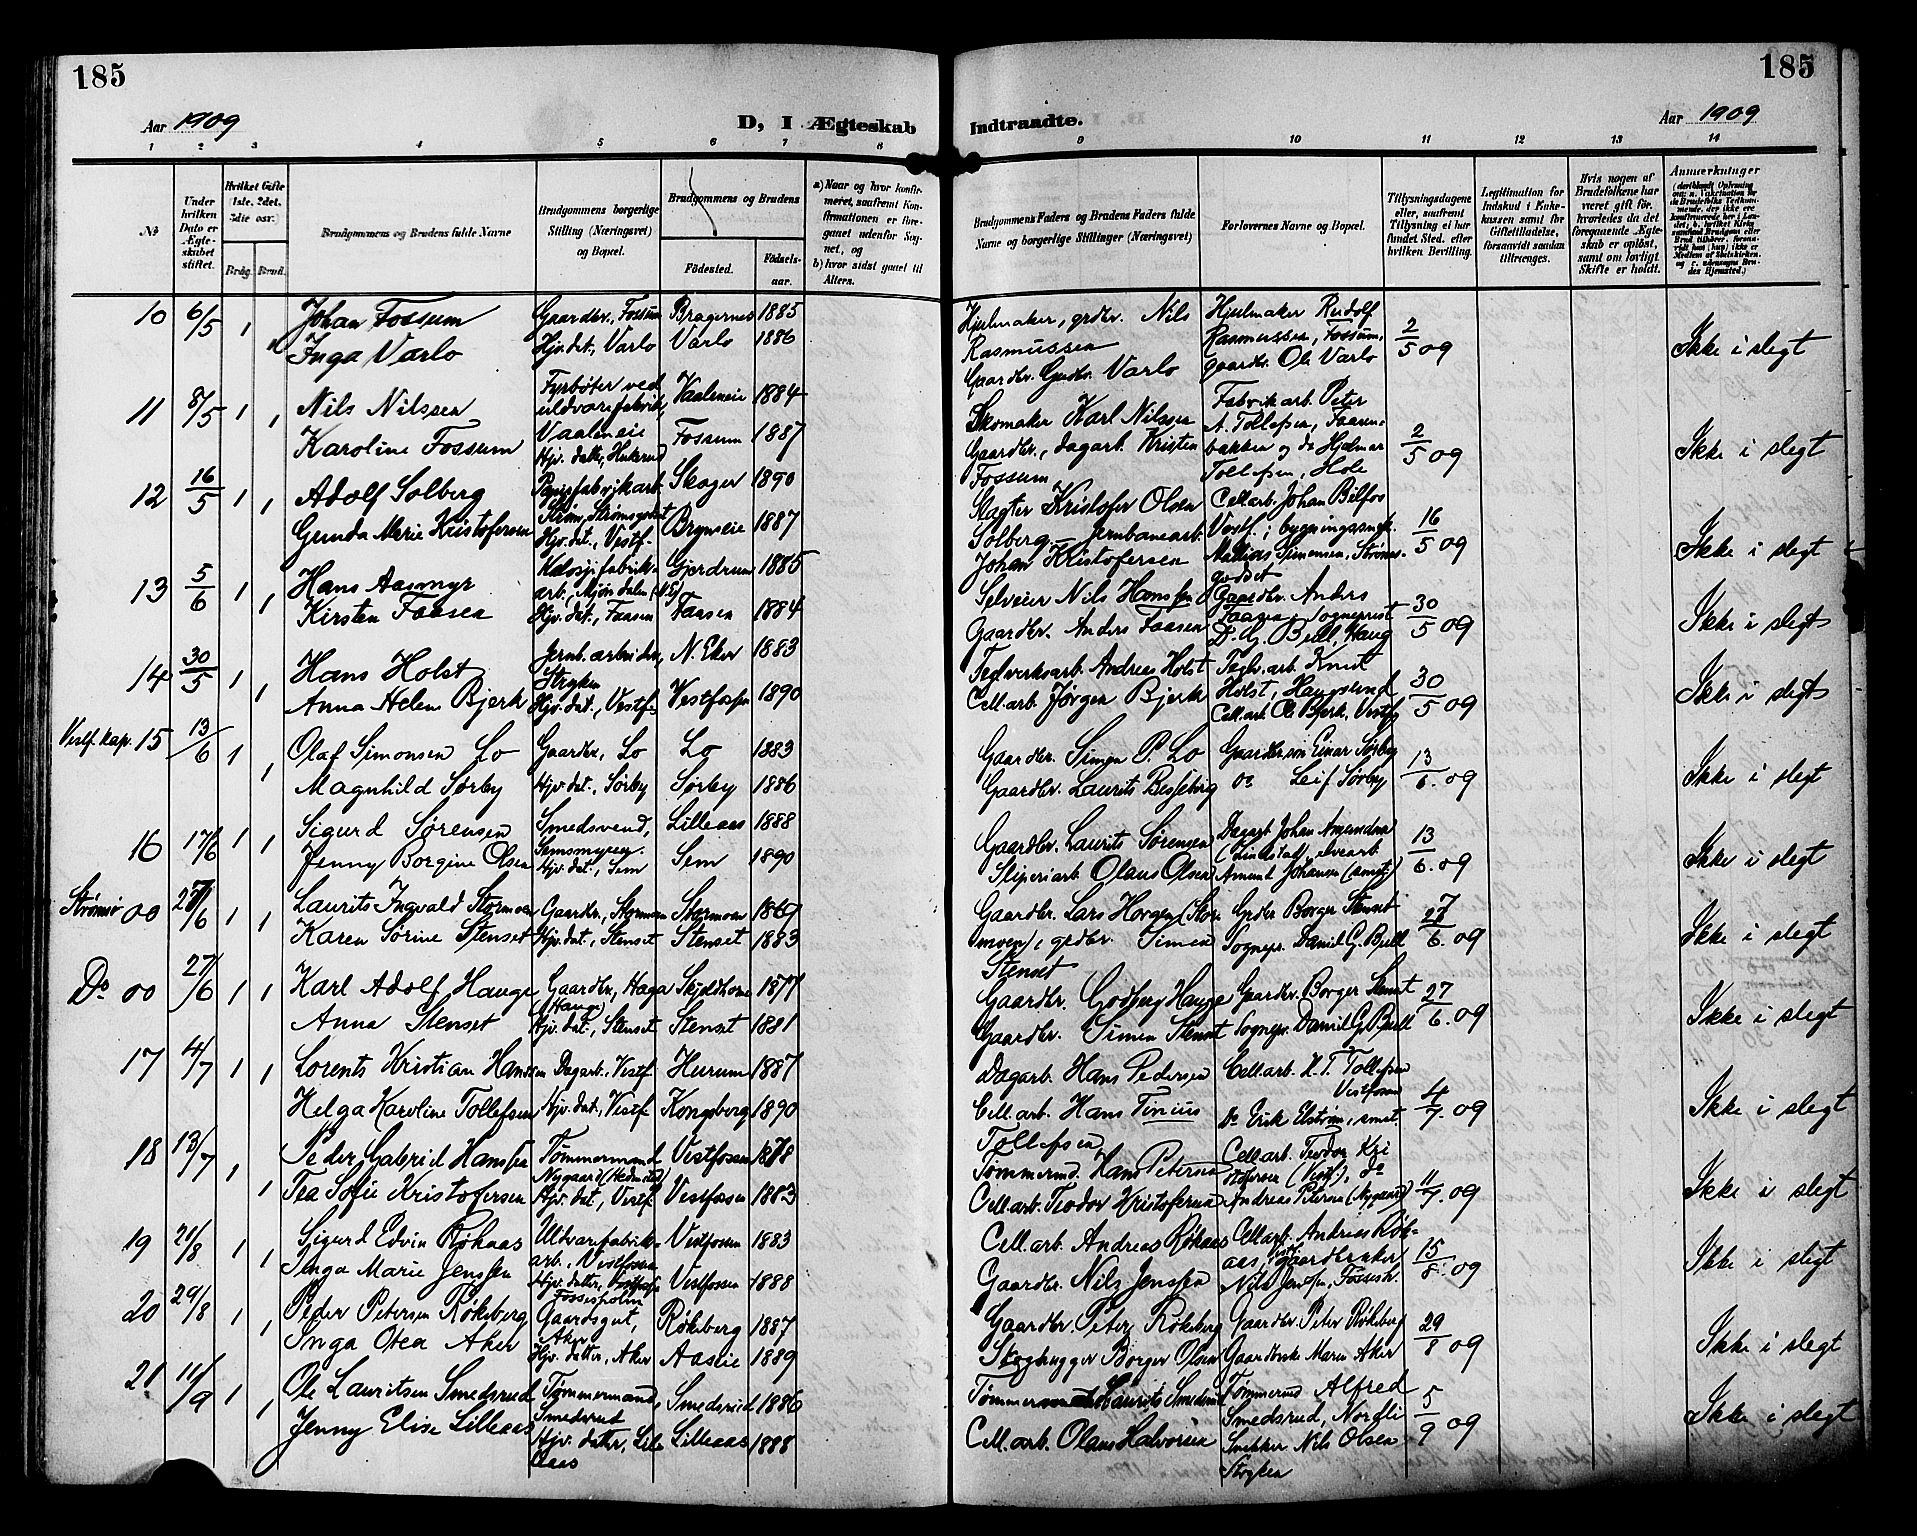 185
185
Aar 1909
D, I Ægteskab
Indtraadte.
Aar 1909
1 2 3 4 5 6 7 8 9 10 11 12 13 14
No
Under hvilken Dato er Ægteskabet stiftet.
Hvilket Gifte (1ste, 2det, 3die osv.)
Brdg. Brud.
Brudgommens og Brudens fulde Navne
Brudgommens borgerlige Stilling (Næringsvei) og Bopæl.
Brudgommens og Brudens
Fødested.
Fødselsaar.
a) Naar og hvor konfirmeret, saafremt Konfirmationen er foregaaet udenfor Sognet, og
b) hvor sidst gaaet til Alters.
Brudgommens Faders og Brudens Faders fulde Navne og borgerlige Stillinger (Næringsvei)
Forlovernes Navne og Bopæl.
Tillysningsdagene eller, saafremt Tillysning ei har fundet Sted, efter hvilken Bevilling.
Legitimation for Indskud i Enkekassen samt for Giftetilladelse, forsaavidt saadan tiltrænges.
Hvis nogen af Brudefolkene har været gift før, hvorledes da det foregaaende Ægteskab er opløst, samt om lovligt Skifte er holdt.
Anmærkninger
10 6/5 1 Johan Fossum Gaardbr., Fossum Bragernes 1885 Hjulmaker, grdbr. Nils Rasmussen Hjulmaker Rudolf Rasmussen, Fossum, 2/5 09 Ikke i slegt
1 Inga Varlo Hjv. dat., Varlo Varlo 1886 Gaardbr. Gudbr. Varlo gaardbr. Ole Varlo
11 8/5 1 1 Nils Nilssen Fyrbøter ved uldvarefabrik, Vaaleneie Vaaleneie 1884 Skomaker Karl Nilssen Fabrikarb. Peter A. Tollefsen, Faarenbakken og do Hjalmar Tollefsen, Hole 2/5 09 Ikke i slegt
Karoline Fossum Hjv. datter, Hukerud Fossum 1887 Gaardbr., dagarb. Kristen Fossum
12 16/5 1 1 Adolf Solberg Papirfabrikarb. Skoger 1890 Slagter Kristofer Olsen Solberg Cell.arb. Johan Bilfos Vestf.; bygningssnek. Mathias Simensen, Strømsgodset 16/5 09 Ikke i slegt
Gunda Marie Kristofersen Hjv. dat., Vestf. Brynseie 1887 Jernbanearb. Johan Kristofersen
13 5/6 1 1 Hans Aasmyr arb., Mjøndalen (N.E.) Gjerdrum 1885 Selveier Nils Hanssen Gaardbr. Anders Faasen, sogneprest D. G. Bull, Haug 30/5 09 Ikke i slegt
Kirsten Faasen Hjv. dat., Faasen Faasen 1884 Gaardbr. Anders Faasen
14 30/5 1 1 Hans Holst Jernb. arbeider, Stryken N. Eker 1883 Teglverksarb. Andreas Holst Teglv. arb. Knut Holst, Haugslund 30/5 09 Ikke i slegt
Anna Helene Bjerk Hjv. dat., Vestf. Vestfossen 1890 Cell.arb. Jørgen Bjerk Cell.arb. Ole Bjerk, Vestf.
Vestf. kap. 15 13/6 1 1 Olaf Simonsen Lo Gaardbr., Lo Lo 1883 Gaardbr. Simen P. Lo Gaardbr.søn Einar Sørby 13/6 09 Ikke i slegt
Magnhild Sørby Hjv. dat., Sørby Sørby 1886 Gaardbr. Laurits Besseberg do Leif Sørby
16 17/6 1 1 Sigurd Sørensen Smedsvend, Semsmyren Lilleaas 1888 Gaardbr. Laurits Sørensen Dagarb. Johan Amundsen 13/6 09 Ikke i slegt
Jenny Borgine Olsen Hjv. dat., Sem Sem 1890 Sliperiarb. Olaus Olsen Amunt Johansen
Strømsø 00 27/6 1 1 Laurits Ingvald Stormoen Gaardbr., Stormoen Stormoen 1869 Gaardbr. Lars Horgen (Stormoen), grdbr. Simen Stenset Grdbr. Borger Stenset 27/6 09 Ikke i slegt
Karen Sørine Stenset Hjv. dat., Stenset Stenset 1883 Sognepr. Daniel G. Bull
Do 00 27/6 1 1 Karl Adolf Hauge Gaardbr., Haga (Hauge) 1877 Gaardbr. Hauge Gaardbr. Borger Stenset 27/6 09 Ikke i slegt
Anna Stenset Hjv. dat., Stenset Stenset 1881 Gaardbr. Simen Stenset Sognepr. Daniel G. Bull
17 4/7 1 1 Lorents Kristian Hanssen Dagarb., Vestf. Hurum 1887 Dagarb. Hans Pedersen Cell.arb. H. T. Tollefsen Vestfossen 4/7 09 Ikke i slegt
Helga Karoline Tollefsen Hjv. dat., Vestf. Kongsberg 1890 Cell.arb. Hans Tinius Tollefsen Do Erik Elstrøm, smst.
18 13/7 1 1 Peder Gabriel Hanssen Tømmermand Nygaard (Hedensted) Vestfossen 1878 Tømmermd. Hans Petersen Cell.arb. Teodor Kristofersen (Vestf.), do 11/7 09 Ikke i slegt
Tea Sofie Kristofersen Hjv. dat., Vestf. Vestfossen 1883 Cell.arb. Teodor Kristofersen Andreas Petersen (Nygaard)
19 21/8 1 1 Sigurd Edvin Røkaas Uldvarefabrikarb., Vestfossen Vestfossen 1883 Cell.arb. Andreas Røkaas Cell.arb. Andreas Røkaas, gaardbruker Nils Jenssen, Fossesh. 15/8 09 Ikke i slegt
Inga Marie Jenssen Hjv. datter, Fossesholm Vestfossen 1888 Gaardbr. Nils Jenssen
20 29/8 1 1 Peder Petersen Røkeberg Gaardsgut, Aker Røkeberg 1887 Gaardbr. Peter Røkeberg Gaardbr. Peter Røkeberg 29/8 09 Ikke i slegt
Inga Otea Aker Hjv. datter, Aker Aaslie 1889 Skoghugger Borger Olsen Gaardbruk. Maren Aker
21 11/9 1 1 Ole Lauritsen Smedsrud Tømmermand, Smedsrud Smedsrud 1886 Tømmermand Laurits Smedsrud Tømmermd. Alfred Smedsrud, Nordli 5/9 09 Ikke i slegt
Jenny Elise Lilleaas Hjv. datter, Lilleaas Lilleaas 1888 Cell.arb. Olaus Halvorsen Snekker Nils Olsen Stryken